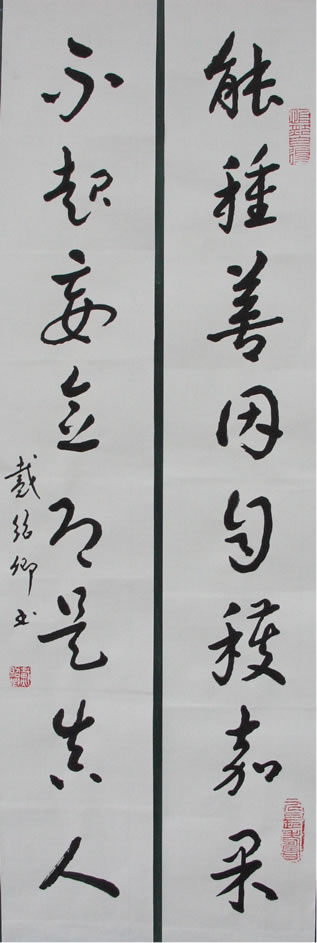 能種善因自穫嘉果
不起妄念即是真人
戴紹卿书